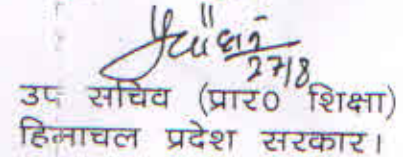 27/8
उप सचिव (प्रार0 शिक्षा)
हिमाचल प्रदेश सरकार।